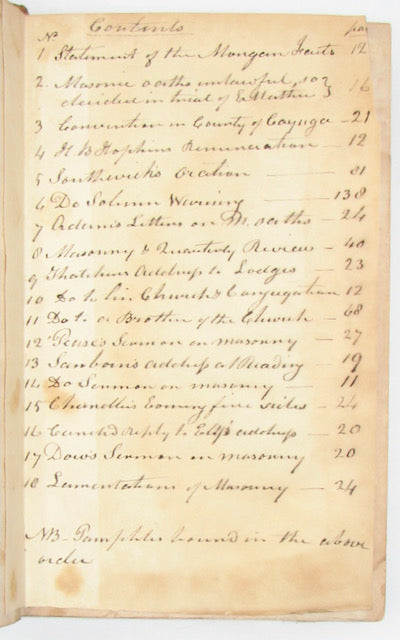 No Contents pag
1 Statement of the Morgan Facts 12
2. Masonic oaths unlawful, so
decided in trial of E. Mather } 16
3 Convention in County of Cayuga - 21
4 H B Hopkins Renunciation - 12
5 Southwicks Oration - 81
6 Do Solemn Warning - 138
7 Adams Letters on M. oaths - 24
8 Masonry & Quarterly Review - 40
9 Thatchers Address to Lodges - 23
10 Do to his Church & Congregation 12
11 Do to a Brother of the Church - 68
12 Pease's Sermon on masonry - 27
13 Sanborn's address at Reading - 19
14 Do Sermon on masonry - 11
15 Chandlers - 24
16 reply to Ely's address - 20
17 Dow's Sermon on masonry 20
18 Lamentations of Masonry - 24
NB - Pamphlets bound in the above
order